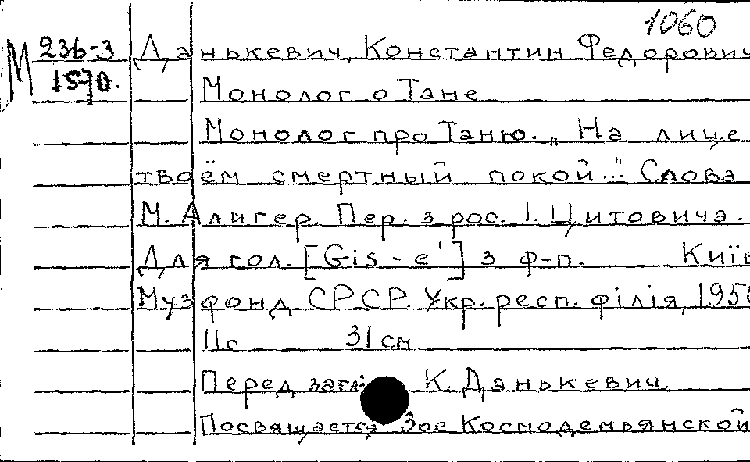 1060
М 236-3 Данькевич, Константин Федорович
1570.
Монолог о Тане
Монолог про Таню. „На лице
твоём смертный покой..." Слова
М. Алигер. Пер. з рос. І. Цитовича.
Для гол. [Gis - e'] з ф-п. Київ
Музфонд СРСР. Укр. респ. філія,
11с 31 см
Перед К. Данькевич
Посвящается Зое Космодемьянской